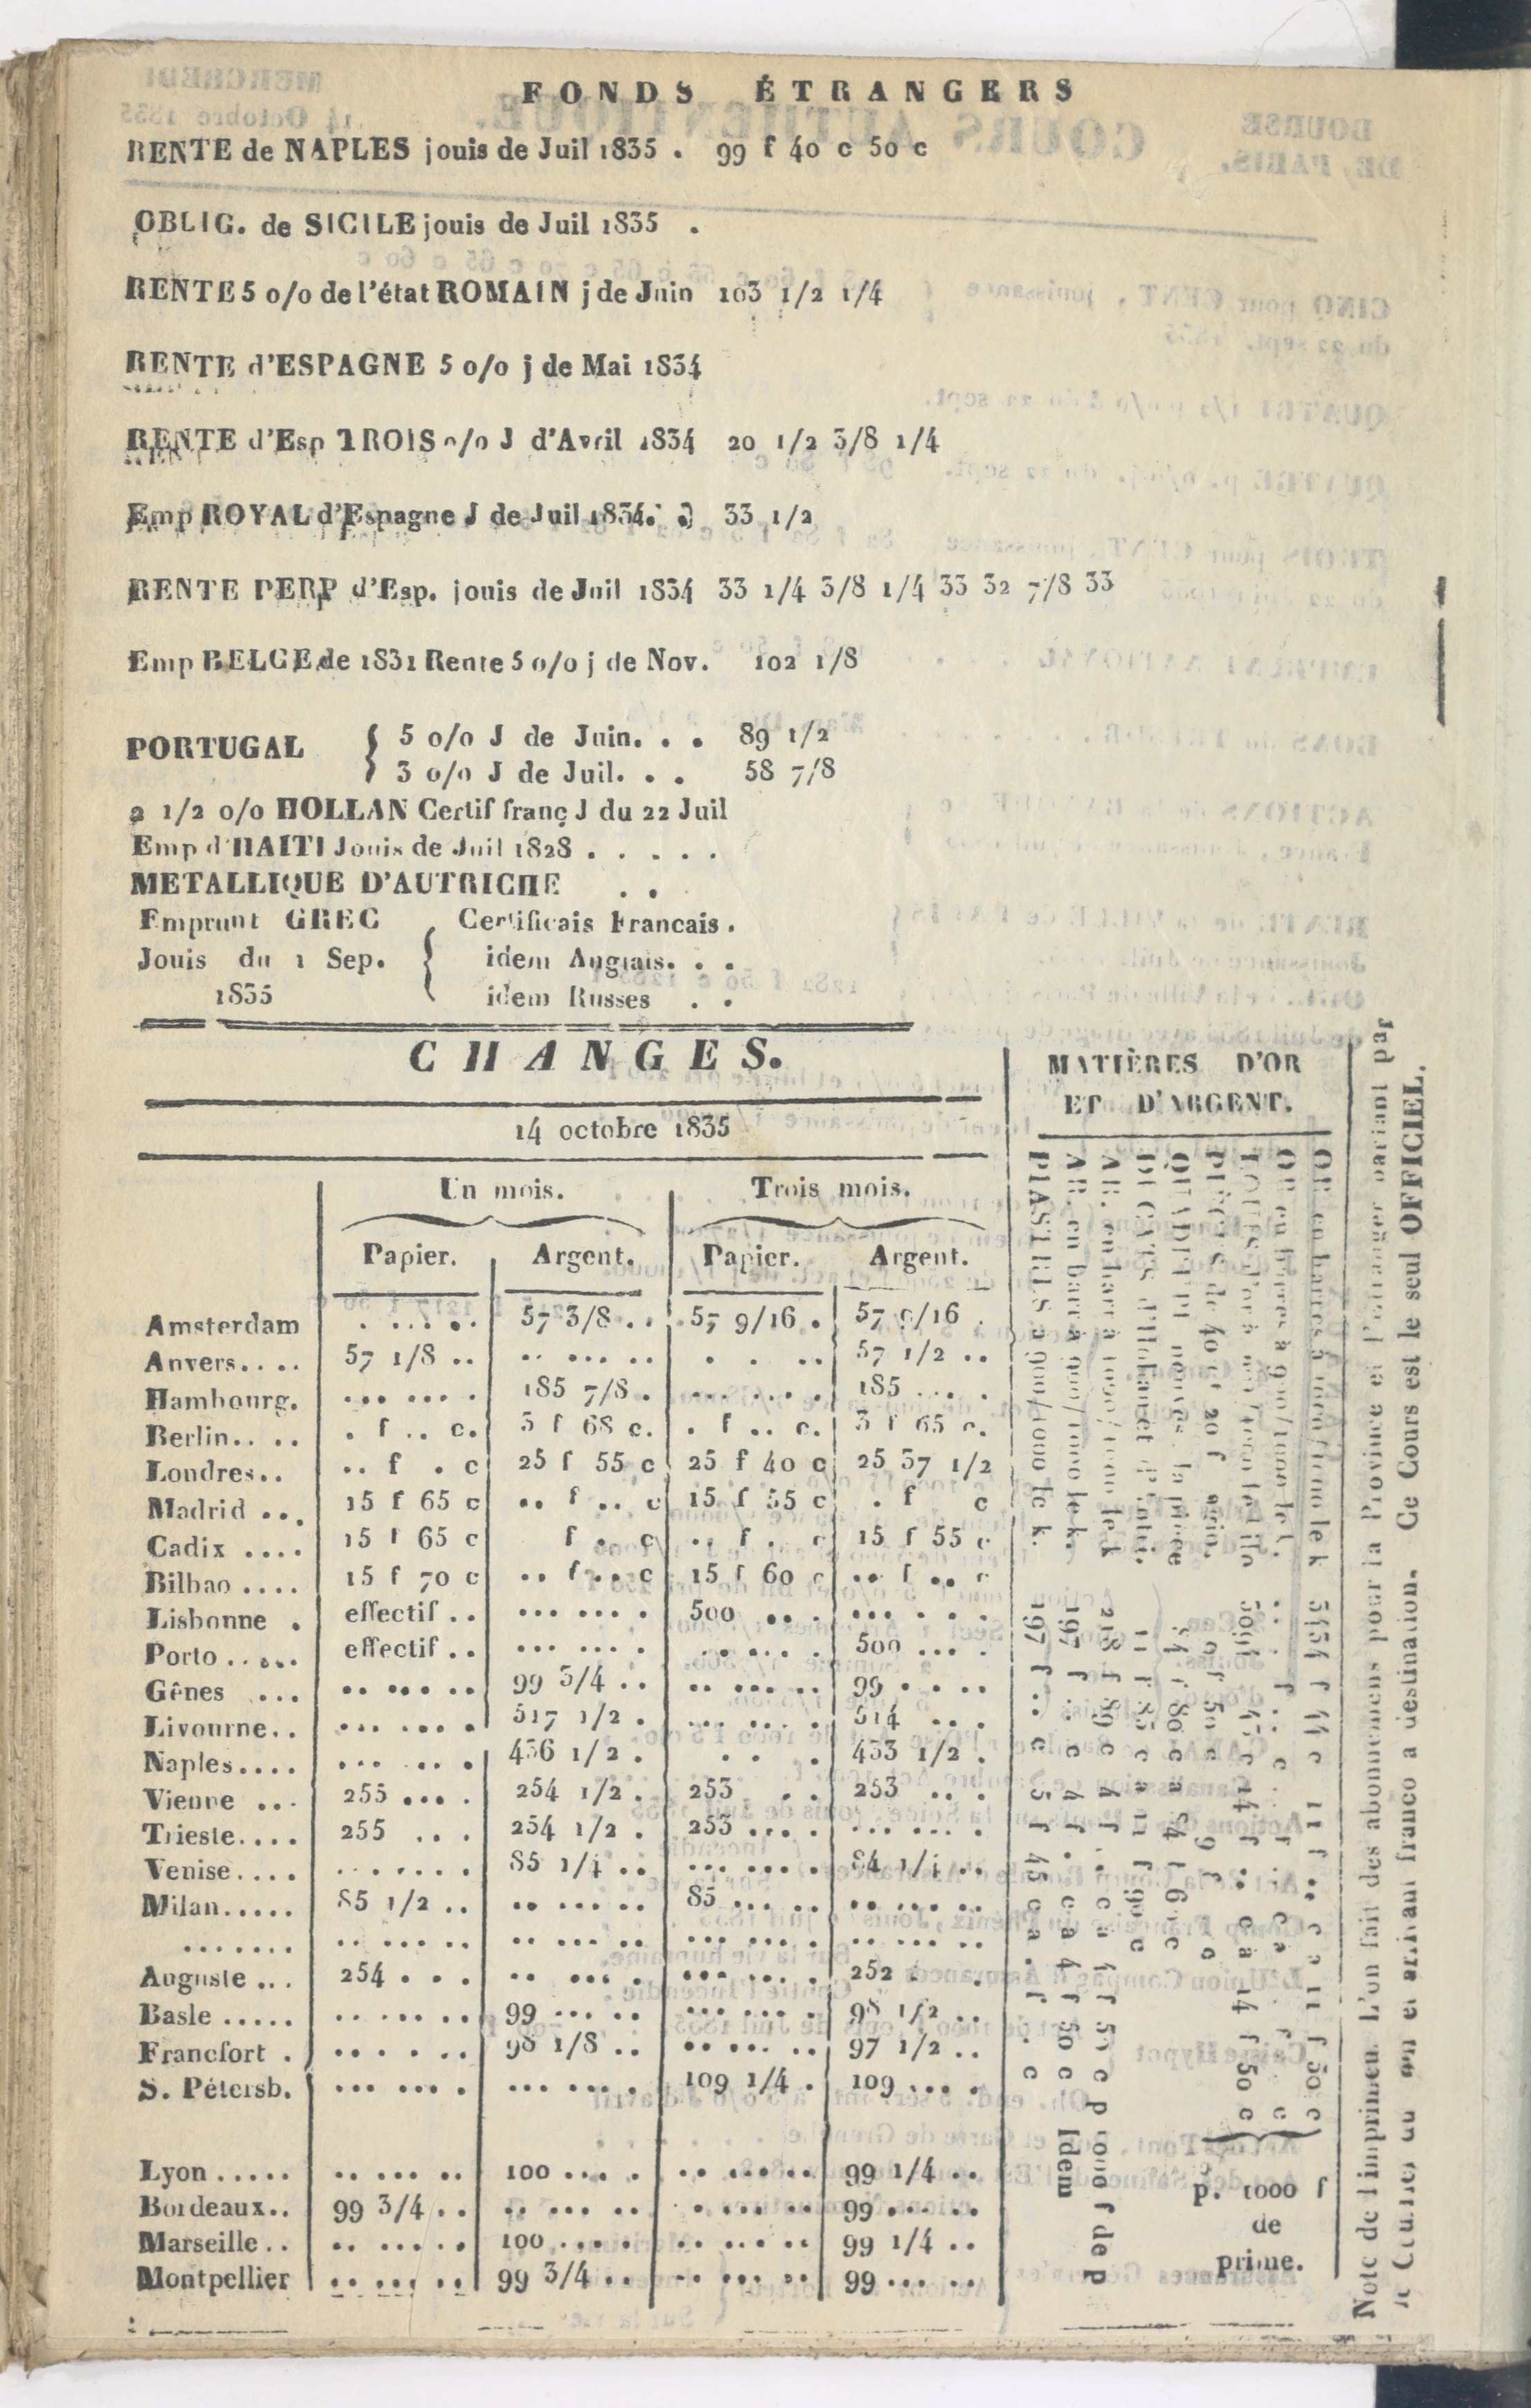 FONDS ÉTRANGERS
RENTE de NAPLES jouis de Juil 1835 . 99 f 40 c 50 c
OBLIG. de SICILE jouis de Juil 1835 .
RENTE 5 o/o de l'état ROMAIN j de Juin 103 1/2 1/4
RENTE d'ESPAGNE 5 o/o j de Mai 1834
RENTE d'Esp TROIS o/o J d'Avril 1834 20 1/2 3/8 1/4
Emp ROYAL d'Espagne J de Juil 1834. . 33 1/2
RENTE PERP d'Esp. jouis de Juil 1834 33 1/4 3/8 1/4 33 32 7/8 33
Emp BELGE de 1831 Rente 5 o/o j de Nov. 102 1/8
PORTUGAL { 5 o/o J de Juin. . . 89 1/2
3 o/o J de Juil. . . 58 7/8
2 1/2 o/o HOLLAN Certif franç J du 22 Juil
Emp d'HAITI Jouis de Juil 1828 . . . . .
METALLIQUE D'AUTRICHE . .
Emprunt GREC { Certificais Francais .
Jouis du 1 Sep. idem Anglais. . .
1835 idem Russes . .
CHANGES.
14 octobre 1835
Un mois. Trois mois.
Papier. Argent. Papier. Argent.
Amsterdam . ... . . 57 3/8 . . 57 9/16 . 57 9/16 .
Anvers.. .. 57 1/8 .. .. ... .. . . .. 57 1/2 ..
Hambourg. ... ... . 185 7/8 . ... ... . 185 ... .
Berlin.. .. . f .. c. 3 f 68 c. . f .. c. 3 f 65 c.
Londres.. .. f . c 25 f 55 c 25 f 40 c 25 37 1/2
Madrid ... 15 f 65 c .. f .. c 15 f 55 c . f c
Cadix .... 15 f 65 c f . c .. f . c 15 f 55 c
Bilbao .... 15 f 70 c .. f .. c 15 f 60 c .. f .. c
Lisbonne . effectif .. ... ... . 500 .. . ... . . .
Porto ..... effectif .. ... ... . .. ... . 500 ... .
Gênes ... .. ... .. 99 3/4 .. .. ... .. 99 . . . .
Livourne.. ... ... . 517 1/2 . ... ... . 514 ... .
Naples.... ... .. . 436 1/2 . . . . 433 1/2 .
Vienne ... 255 ... . 254 1/2 . 253 . . 253 .. .
Trieste.... 255 ... 254 1/2 . 253 ... . ... ... .
Venise.... . ... ... 85 1/4 .. ... ... . 84 1/4 ..
Milan..... 85 1/2 .. .. ... .. 85 ... .. .. ... ..
....... .. ... .. .. ... .. ... ... . .. ... ..
Auguste ... 254 . . . .. ... . ... ... . 252 . .
Basle ..... .. ... .. 99 ... .. ... ... . 98 1/2 ..
Francfort . .. . . .. 98 1/8 .. .. ... .. 97 1/2 ..
S. Pétersb. ... ... . ... ... . 109 1/4 . 109 ... .
Lyon ..... .. ... .. 100 ... . .. ... .. 99 1/4 ..
Bordeaux.. 99 3/4 .. .. ... .. . ... .. 99 ... ..
Marseille .. .. ... .. 100 ... . .. ... .. 99 1/4 ..
Montpellier .. ... .. 99 3/4 .. .. ... .. 99 ... ..
MATIÈRES D'OR
ET D'ARGENT.
OR en barres à 1000/1000 le k 3434 f 44 c 11 f .. c a 11 f 50 c
OR en barres à 900/1000 le k. .. f .. c . f . c a . f . c
14 f .. c a 14 f 50 c
PIÈCES de 40 et 20 f agio. 9 f 50 c a 9 f c
QUADRUPL neuves la pièce 84 f 80 c a 84 f 6 c
DUCATS d'Hol 11 f 85 c a 11 f 90 c
AR. en barr à 1000/1000 le k 218 f 89 c 4 f .. c a 4 f 50 c p 1000 f de p
AR. en barr à 900/1000 le k. 197 f .. c 4 f . c a 4 f 50 c Idem
PIASTRES a 900/1000 le k. 197 f .. c 5 f 45 c a . f . c
p. 1000 f
de
prime.
Note de l'imprimeu. L'on fait des abonnemens pour la Province et l'étranger partant par
le Courrier du et arrivant franco a destination. Ce Cours est le seul OFFICIEL.